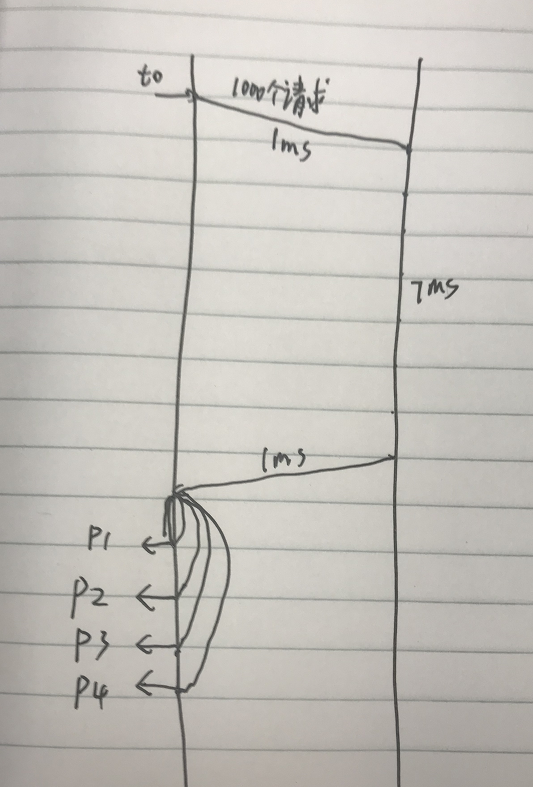 t0
1000个请求
1ms
7ms
1ms
P1
P2
P3
P4